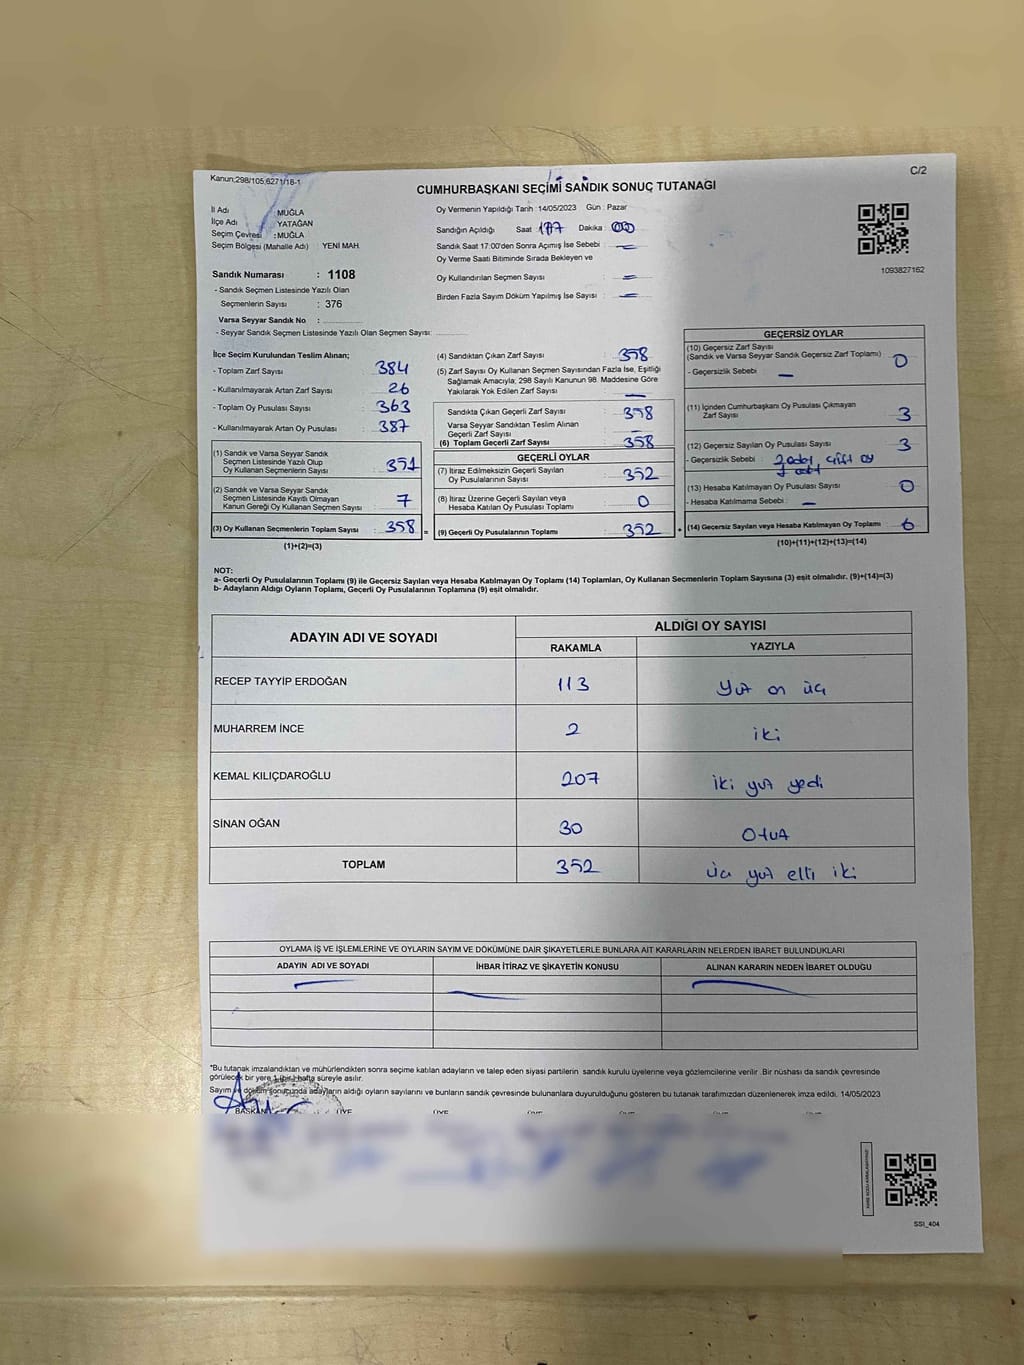 Kanun;298/105,6271/18-1
C/2
CUMHURBAŞKANI SEÇİMİ SANDIK SONUÇ TUTANAĞI
İl Adı : MUĞLA
İlçe Adı : YATAĞAN
Seçim Çevresi : MUĞLA
Seçim Bölgesi (Mahalle Adı) : YENİ MAH.
Sandık Numarası : 1108
- Sandık Seçmen Listesinde Yazılı Olan
Seçmenlerin Sayısı : 376
Varsa Seyyar Sandık No :
- Seyyar Sandık Seçmen Listesinde Yazılı Olan Seçmen Sayısı:
Oy Vermenin Yapıldığı Tarih : 14/05/2023 Gün : Pazar
Sandığın Açıldığı Saat : Dakika : 00
Sandık Saat 17:00'den Sonra Açımış İse Sebebi : —
Oy Verme Saati Bitiminde Sırada Bekleyen ve
Oy Kullandırılan Seçmen Sayısı : —
Birden Fazla Sayım Döküm Yapılmış İse Sayısı : —
1093827162
İlçe Seçim Kurulundan Teslim Alınan;
- Toplam Zarf Sayısı : 384
- Kullanılmayarak Artan Zarf Sayısı : 26
- Toplam Oy Pusulası Sayısı : 363
- Kullanılmayarak Artan Oy Pusulası : 387
(1) Sandık ve Varsa Seyyar Sandık
Seçmen Listesinde Yazılı Olup
Oy Kullanan Seçmenlerin Sayısı : 351
(2) Sandık ve Varsa Seyyar Sandık
Seçmen Listesinde Kayıtlı Olmayan
Kanun Gereği Oy Kullanan Seçmen Sayısı : 7
(3) Oy Kullanan Seçmenlerin Toplam Sayısı : 358
(1)+(2)=(3)
(4) Sandıktan Çıkan Zarf Sayısı : 358
(5) Zarf Sayısı Oy Kullanan Seçmen Sayısından Fazla İse, Eşitliği
Sağlamak Amacıyla; 298 Sayılı Kanunun 98. Maddesine Göre
Yakılarak Yok Edilen Zarf Sayısı : —
Sandıkta Çıkan Geçerli Zarf Sayısı : 358
Varsa Seyyar Sandıktan Teslim Alınan
Geçerli Zarf Sayısı : —
(6) Toplam Geçerli Zarf Sayısı : 358
GEÇERLİ OYLAR
(7) İtiraz Edilmeksizin Geçerli Sayılan
Oy Pusulalarının Sayısı : 352
(8) İtiraz Üzerine Geçerli Sayılan veya
Hesaba Katılan Oy Pusulası Toplamı : 0
= (9) Geçerli Oy Pusulalarının Toplamı : 352
GEÇERSİZ OYLAR
(10) Geçersiz Zarf Sayısı
(Sandık ve Varsa Seyyar Sandık Geçersiz Zarf Toplamı) : 0
- Geçersizlik Sebebi : —
(11) İçinden Cumhurbaşkanı Oy Pusulası Çıkmayan
Zarf Sayısı : 3
(12) Geçersiz Sayılan Oy Pusulası Sayısı : 3
- Geçersizlik Sebebi : çift oy
(13) Hesaba Katılmayan Oy Pusulası Sayısı : 0
- Hesaba Katılmama Sebebi : —
+ (14) Geçersiz Sayılan veya Hesaba Katılmayan Oy Toplamı : 6
(10)+(11)+(12)+(13)=(14)
NOT:
a- Geçerli Oy Pusulalarının Toplamı (9) ile Geçersiz Sayılan veya Hesaba Katılmayan Oy Toplamı (14) Toplamları, Oy Kullanan Seçmenlerin Toplam Sayısına (3) eşit olmalıdır. (9)+(14)=(3)
b- Adayların Aldığı Oyların Toplamı, Geçerli Oy Pusulalarının Toplamına (9) eşit olmalıdır.
ADAYIN ADI VE SOYADI
ALDIĞI OY SAYISI
RAKAMLA YAZIYLA
RECEP TAYYİP ERDOĞAN 113 yüz on üç
MUHARREM İNCE 2 iki
KEMAL KILIÇDAROĞLU 207 iki yüz yedi
SİNAN OĞAN 30 Otuz
TOPLAM 352 üç yüz elli iki
OYLAMA İŞ VE İŞLEMLERİNE VE OYLARIN SAYIM VE DÖKÜMÜNE DAİR ŞİKAYETLERLE BUNLARA AİT KARARLARIN NELERDEN İBARET BULUNDUKLARI
ADAYIN ADI VE SOYADI İHBAR İTİRAZ VE ŞİKAYETİN KONUSU ALINAN KARARIN NEDEN İBARET OLDUĞU
*Bu tutanak imzalandıktan ve mühürlendikten sonra seçime katılan adayların ve talep eden siyasi partilerin sandık kurulu üyelerine veya gözlemcilerine verilir .Bir nüshası da sandık çevresinde
görülecek bir yere 1 (bir) hafta süreyle asılır.
Sayım ve döküm sonucunda adayların aldığı oyların sayılarını ve bunların sandık çevresinde bulunanlara duyurulduğunu gösteren bu tutanak tarafımızdan düzenlenerek imza edildi. 14/05/2023
BAŞKAN ÜYE ÜYE ÜYE ÜYE ÜYE
SSI_404